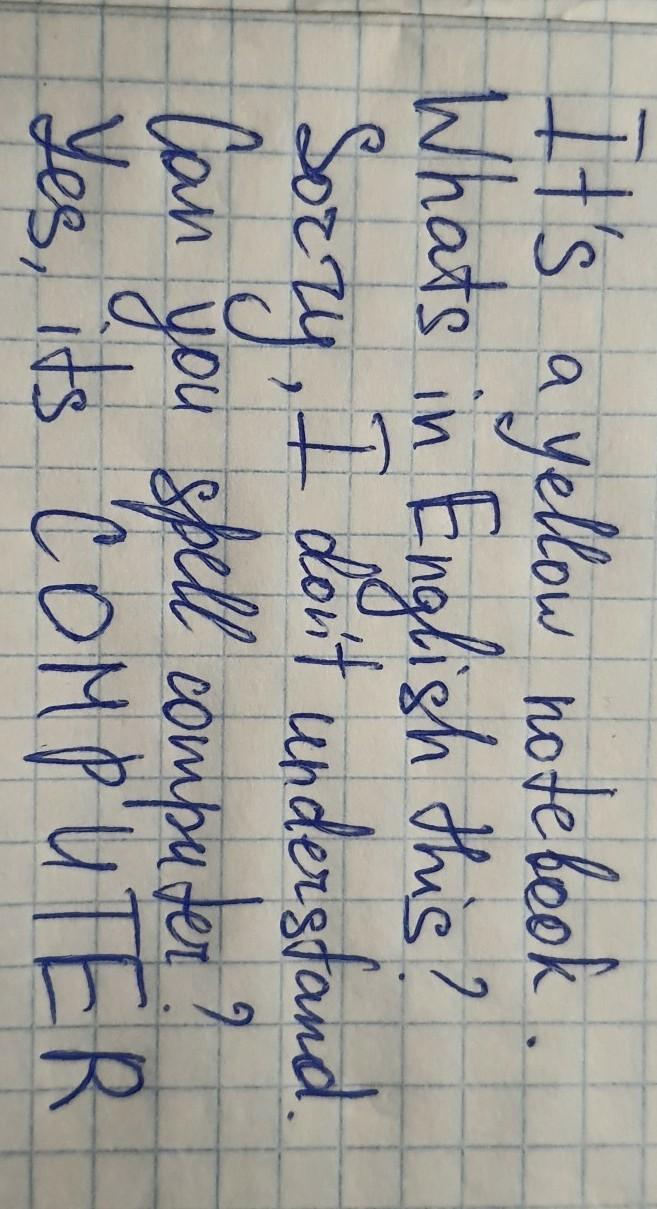 It's a yellow notebook.
Whats in English this?
Sorry, I don't understand.
Can you spell computer?
Yes, its COMPUTER